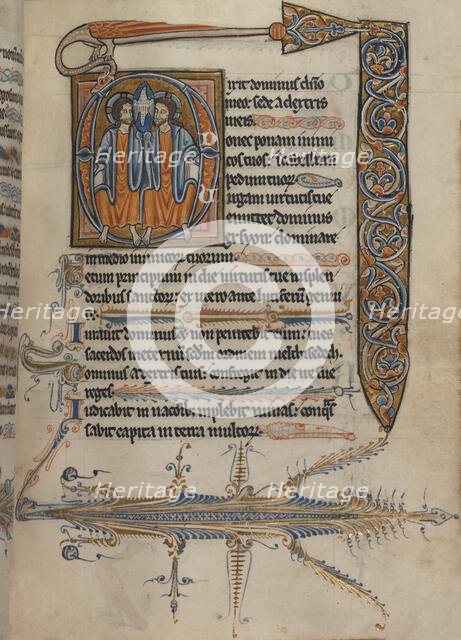 D ixit dominus dño
meo: sede a dextris
meis.
D onec ponam inimi
cos tuos: scabellum
pedum tuor.
V irgam uirtutis tue
emittet dominus
ex syon: dominare
in medio inimicor tuorum
T ecum principium in die uirtutis tue in splen
doribus sanctor: ex utero ante genui
I urauit dominus et non penitebit eum: tu es
sacerdos in eternum ordinem melchisedech
D ominus a dextris tuis: confregit in die ire
reges
I udicabit in implebit ruinas:
sabit capita in terra multor.
Heritage
Heritage
Heritage
Heritage
Heritage
Heritage
Heritage
Heritage
Heritage